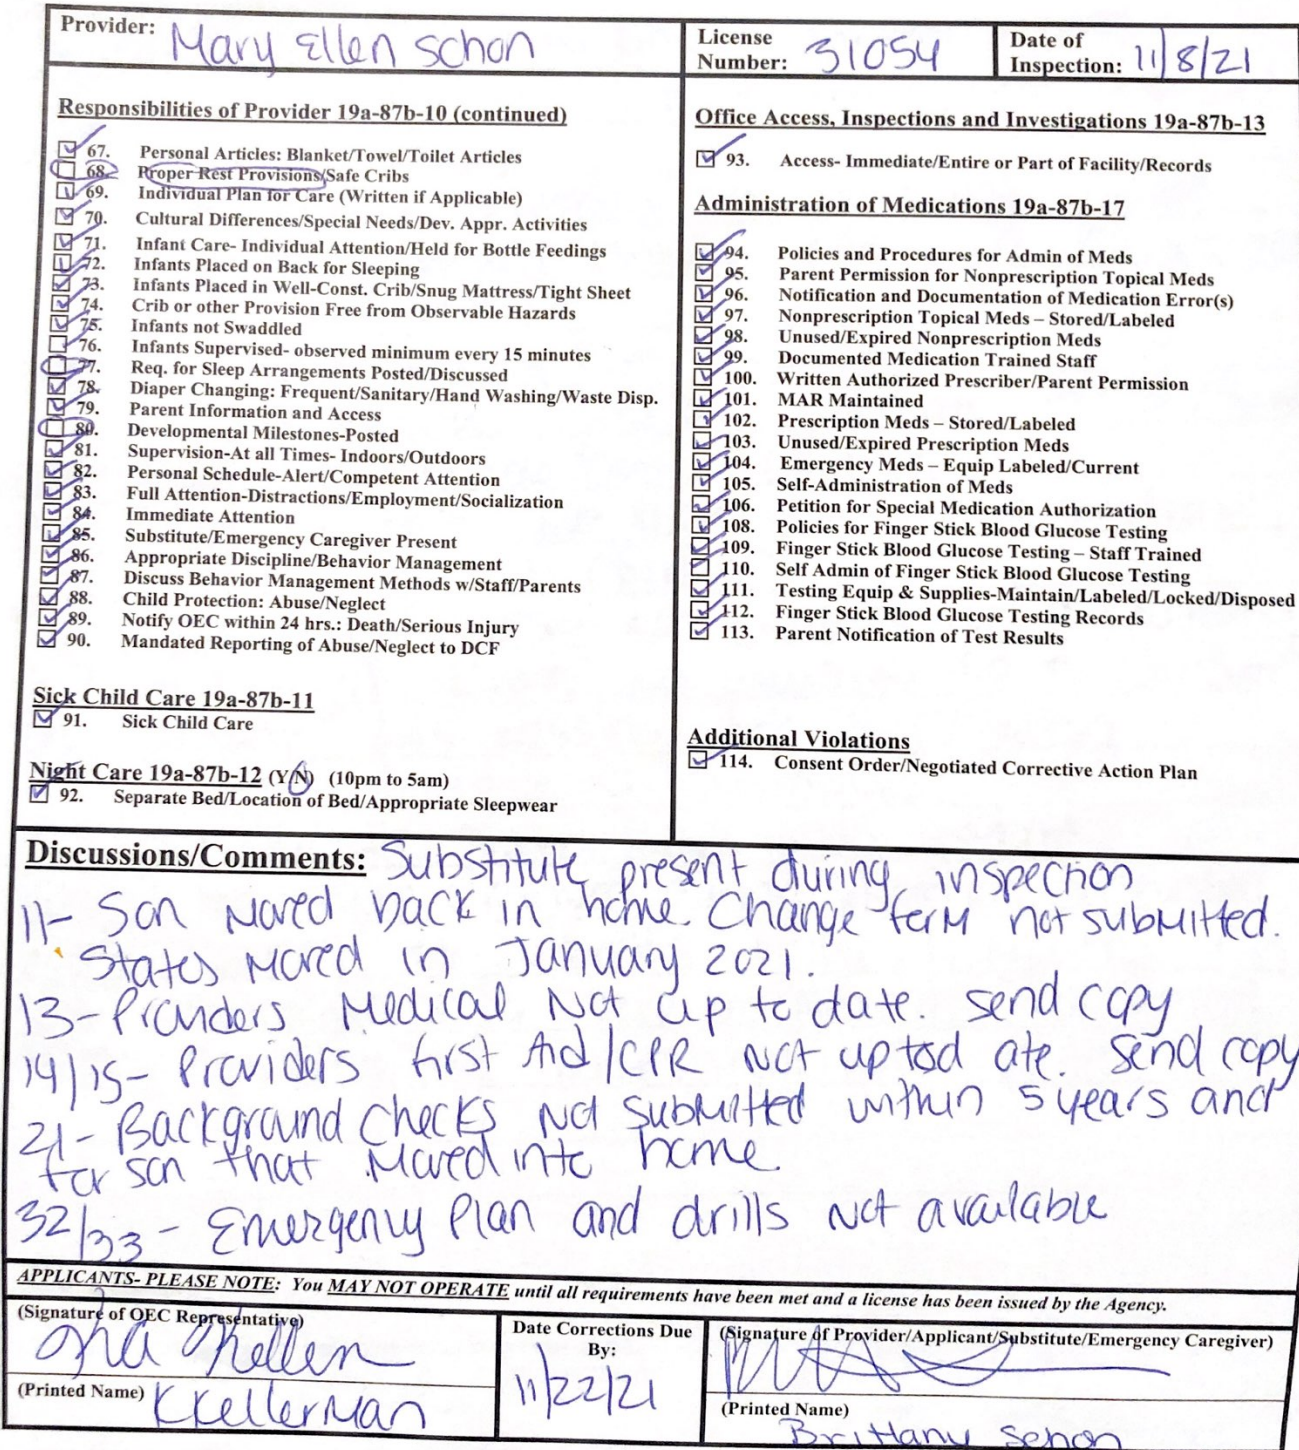 Provider: Mary Ellen Schon
License Number: 31054
Date of Inspection: 11/8/21
Responsibilities of Provider 19a-87b-10 (continued)
67. Personal Articles: Blanket/Towel/Toilet Articles
68. Proper Rest Provisions/Safe Cribs
69. Individual Plan for Care (Written if Applicable)
70. Cultural Differences/Special Needs/Dev. Appr. Activities
71. Infant Care- Individual Attention/Held for Bottle Feedings
72. Infants Placed on Back for Sleeping
73. Infants Placed in Well-Const. Crib/Snug Mattress/Tight Sheet
74. Crib or other Provision Free from Observable Hazards
75. Infants not Swaddled
76. Infants Supervised- observed minimum every 15 minutes
77. Req. for Sleep Arrangements Posted/Discussed
78. Diaper Changing: Frequent/Sanitary/Hand Washing/Waste Disp.
79. Parent Information and Access
80. Developmental Milestones-Posted
81. Supervision-At all Times- Indoors/Outdoors
82. Personal Schedule-Alert/Competent Attention
83. Full Attention-Distractions/Employment/Socialization
84. Immediate Attention
85. Substitute/Emergency Caregiver Present
86. Appropriate Discipline/Behavior Management
87. Discuss Behavior Management Methods w/Staff/Parents
88. Child Protection: Abuse/Neglect
89. Notify OEC within 24 hrs.: Death/Serious Injury
90. Mandated Reporting of Abuse/Neglect to DCF
Sick Child Care 19a-87b-11
91. Sick Child Care
Night Care 19a-87b-12 (Y/N) (10pm to 5am)
92. Separate Bed/Location of Bed/Appropriate Sleepwear
Office Access, Inspections and Investigations 19a-87b-13
93. Access- Immediate/Entire or Part of Facility/Records
Administration of Medications 19a-87b-17
94. Policies and Procedures for Admin of Meds
95. Parent Permission for Nonprescription Topical Meds
96. Notification and Documentation of Medication Error(s)
97. Nonprescription Topical Meds – Stored/Labeled
98. Unused/Expired Nonprescription Meds
99. Documented Medication Trained Staff
100. Written Authorized Prescriber/Parent Permission
101. MAR Maintained
102. Prescription Meds – Stored/Labeled
103. Unused/Expired Prescription Meds
104. Emergency Meds – Equip Labeled/Current
105. Self-Administration of Meds
106. Petition for Special Medication Authorization
108. Policies for Finger Stick Blood Glucose Testing
109. Finger Stick Blood Glucose Testing – Staff Trained
110. Self Admin of Finger Stick Blood Glucose Testing
111. Testing Equip & Supplies-Maintain/Labeled/Locked/Disposed
112. Finger Stick Blood Glucose Testing Records
113. Parent Notification of Test Results
Additional Violations
114. Consent Order/Negotiated Corrective Action Plan
Discussions/Comments: Substitute present during inspection
11- Son moved back in home. Change form not submitted.
States moved in January 2021.
13- Providers Medical Not up to date. send copy
14/15- Providers first Aid/CPR Not uptod ate. Send copy
21- Background checks Not submitted within 5 years and
for son that moved into home.
32/33- Emergency Plan and drills Not available
APPLICANTS- PLEASE NOTE: You MAY NOT OPERATE until all requirements have been met and a license has been issued by the Agency.
(Signature of OEC Representative)
(Printed Name) K Kellerman
Date Corrections Due By:
11/22/21
(Signature of Provider/Applicant/Substitute/Emergency Caregiver)
(Printed Name)
Brittany Schon